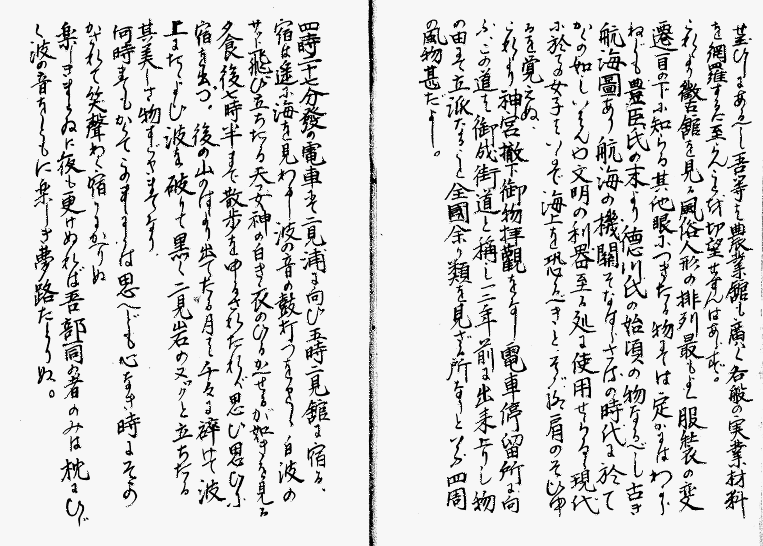 並びしまあるべし吾等は農業館も廣く各般の実業材料
を網羅するに至らんことを切望せずんばあらず。
これより徴古館を見る風俗人形の排列最もよく服装の変
遷一目の下に知らる其他眼につきたる物には定かにはわから
ねども豊臣氏の末より徳川氏の始頃の物なるべし古き
航海圖あり航海の機関そなはらざるの時代に於て
かくの如しいはんや文明の利器至る処に使用せらるる現代
に於てをや女子といへども海上を恐るべきとそゞろ肩のそびゆ
るを覚えぬ、
これより神宮撤下御物拝観をなし電車停留所に向
ふ、この道は御成街道と称し一二年前に出来上りし物
の由にて立派なること全國余り類を見ざる所なりといふ四周
の風物甚だよし。
四時二十七分發の電車にて二見浦に向ひ五時二見館に宿る、
宿は遥に海を見わたし波の音の鼓打つをきく白波の
サット飛び立ちたる天つ女神の白き衣のひるがへせるが如きを見る
夕食後七時半まで散歩をゆるされたれば思ひ思ひに
宿を出づ、後の山のはより出てたる月は千々に碎けて波
上にたゞよひ波を破りて黒く二見岩のヌックと立ちたる
其美しさ物すごきまでなり
何時までもかくてあらましとは思へども心なき時にそゝの
かされて笑聲わく宿にかへりぬ
楽しきまどゐに夜も更けぬれば吾部同の者のみは枕にひゞ
く波の音もろともに楽しき夢路をたどりぬ。